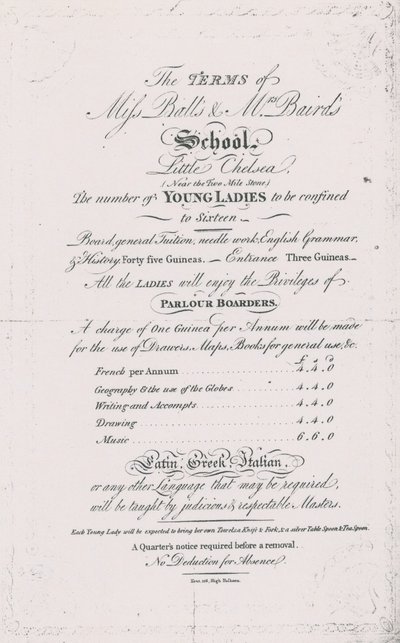 The TERMS of
Miſs Ball's & Mrs. Baird's
School,
Little Chelsea,
(Near the Two Mile Stone)
The number of YOUNG LADIES to be confined
to Sixteen.
Board, general Tuition, needle work, English Grammar,
& History, Forty five Guineas. — Entrance Three Guineas.
All the LADIES will enjoy the Privileges of
PARLOUR BOARDERS.
A charge of One Guinea per Annum will be made
for the use of Drawers, Maps, Books for general use, &c.
£ s d
French per Annum 4.4.0
Geography & the use of the Globes 4.4.0
Writing and Accompts 4.4.0
Drawing 4.4.0
Music 6.6.0
Latin, Greek, Italian,
or any other Language that may be required,
will be taught by judicious & respectable Masters.
Each Young Lady will be expected to bring her own Towels, a Knife & Fork, & a silver Table Spoon & Tea Spoon.
A Quarter's notice required before a removal.
No Deduction for Absence.
High Holborn.